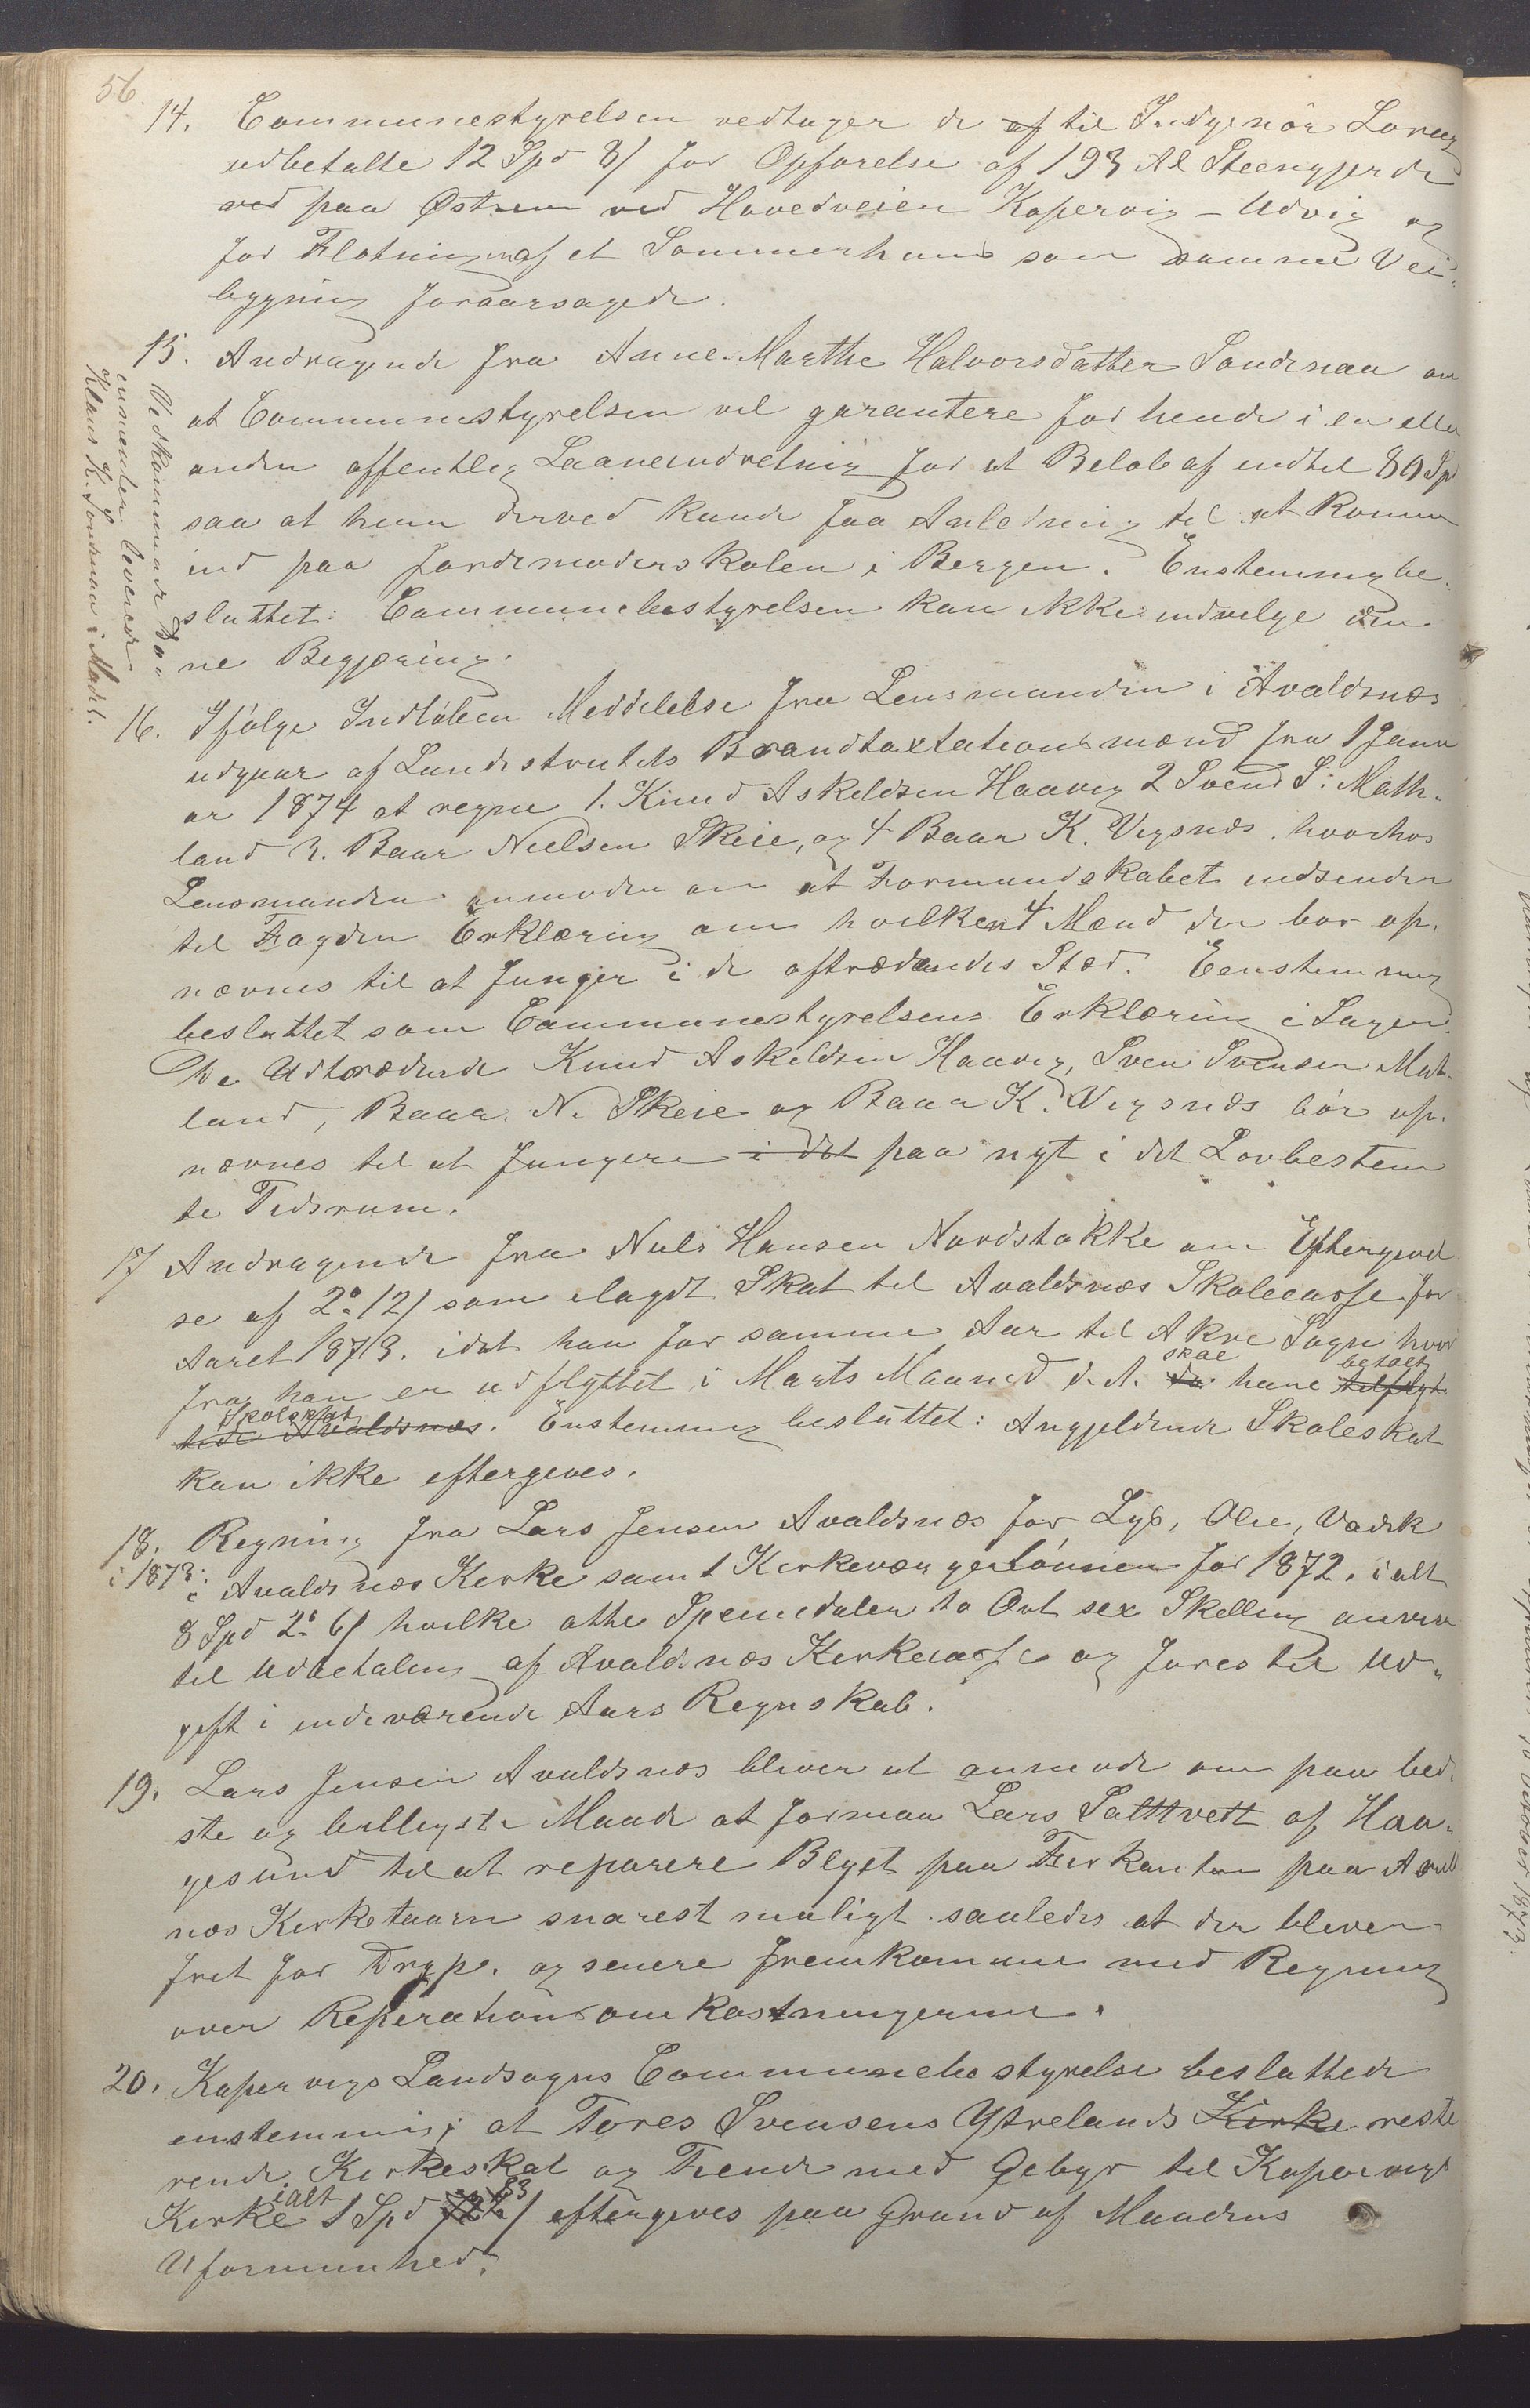 56.
14. Communestyrelsen vedtager de af til Indgenör Lorenz
udbetalte 12 Spd 8/ for Opförelse af 193 Al Steengjerde
ved paa Østrem ved Hovedveien Kopervig - Udvig og
for Flotningen af et Sommerhuus som samme Vei-
bygning foraarsagede.
15. Andragende fra Anne Marthe Halvorsdatter Sondenaa om
at Communestyrelsen vel garantere for hende i en eller
anden offentlig Laaneindretning for et Beløb af indtil 80 Spd
saa at hun derved kunde faa Anledning til at komme
ind paa Jordemoderskolen i Bergen. Enstemmig be-
sluttet: Communebestyrelsen kan ikke indvelge den
ne Begjæring.
Vedkommende Do-
cumenter leveret
Klaus K. Sondenaa i Madl.
16. Ifølge Indløben Meddelelse fra Lensmanden i Avaldsnæs
udgaar af Landistriktets Brandtaxtationsmænd fra 1 Janu
ar 1874 at regne 1. Knud Askeldsen Haavig 2 Svend S: Meth-
land 3. Baar Nielsen Skeie, og 4 Baar K. Vigsnæs. hvorhos
Lensmanden anmoder om at Formandskabet indsender
til Fogden Erklæring om hvilken 4 Mænd der bør op-
nævnes til at funger i de aftrædendes Sted. Eenstemmig
besluttet som Communestyrelsens Erklæring i Sagen.
De Udtrædende Knud Askeldsen Haavig, Sven Svensen Met-
land, Baar N. Skeie og Baar K. Vigsnæs bör op-
nævnes til at fungere i det paa nyt i det Lovbestem
te Tidsrum.
17 Andragende fra Niels Hansen Nordstokke om Eftergivel
se af 2 12/ som ilagdt Skat til Avaldsnæs Skolecasse for
Aaret 1873. idet han for samme Aar til Akre Sogn hvor
fra han er udflyttet i Marts Maaned d. A. da skal have tilflyt betalt
tede Avaldsnæs Skoleskat. Enstemmig besluttet: Angjeldende Skoleskat
kan ikke eftergives.
18. Regning fra Lars Jensen Avaldsnæs for Lys, Olie, Vadsk
i 1873. i Avaldsnæs Kirke samt Kirkeværgerlønnen for 1872. ialt
8 Spd 2 6/ hvilke otte Speciedaler to Ort sex Skelling anvises
til Udbetaling af Avaldsnæs Kirkecasse og föres til Ud-
gift i indeværende Aars Regnskab.
19. Lars Jensen Avaldsnæs bliver at anmode om paa bed-
ste og billigste Maade at formaa Lars Salttvett af Hau-
gesund til at reparere Blyet paa Firkanten paa Avald
næs Kirketaarn snarest muligt saaledes at der bliver
frit for Dryp. og senere fremkomme med Regning
over Reperationsomkostningerne.
20. Kopervigs Landsogns Communebestyrelse besluttede
enstemmig; at Tores Svensens Ytrelands Kirke reste
rende Kirkeskat og Tiende med Gebyr til Kopervigs
Kirke ialt 1 Spd 83/ eftergives paa Grund af Mandens
Uformuenhed.